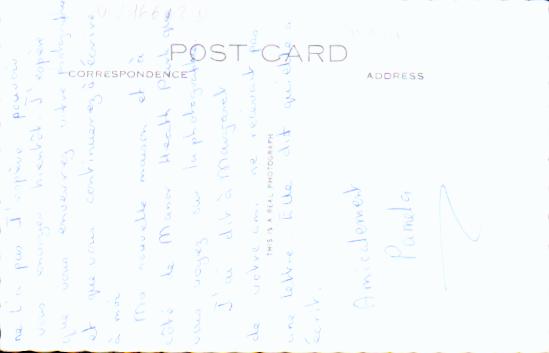 POST CARD
CORRESPONDENCE
ADDRESS
THIS IS A REAL PHOTOGRAPH
ne l'a pas. J'espère pouvoir
vous envoyer bientôt. J'espère
que vous enverrez votre photographie
et que vous continuerez à écrire
à moi
Ma nouvelle maison est à
côté de Manor Heath Park que
vous voyez sur la photographie
J'ai dit à Margaret
de votre ami ne recevant pas
une lettre Elle dit qu'elle a
écrit.
Amicalement
Pamela